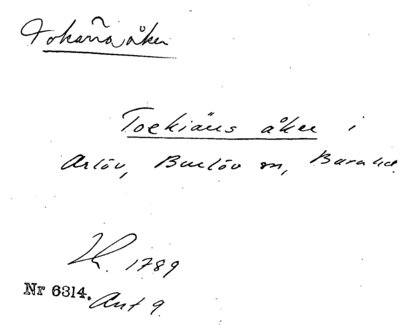 Tokarna åker
Toekiäns åker i
Arlöv, Burlöv sn, Bara hd.
Lr. 1789
Nr 6314. Ant 9.